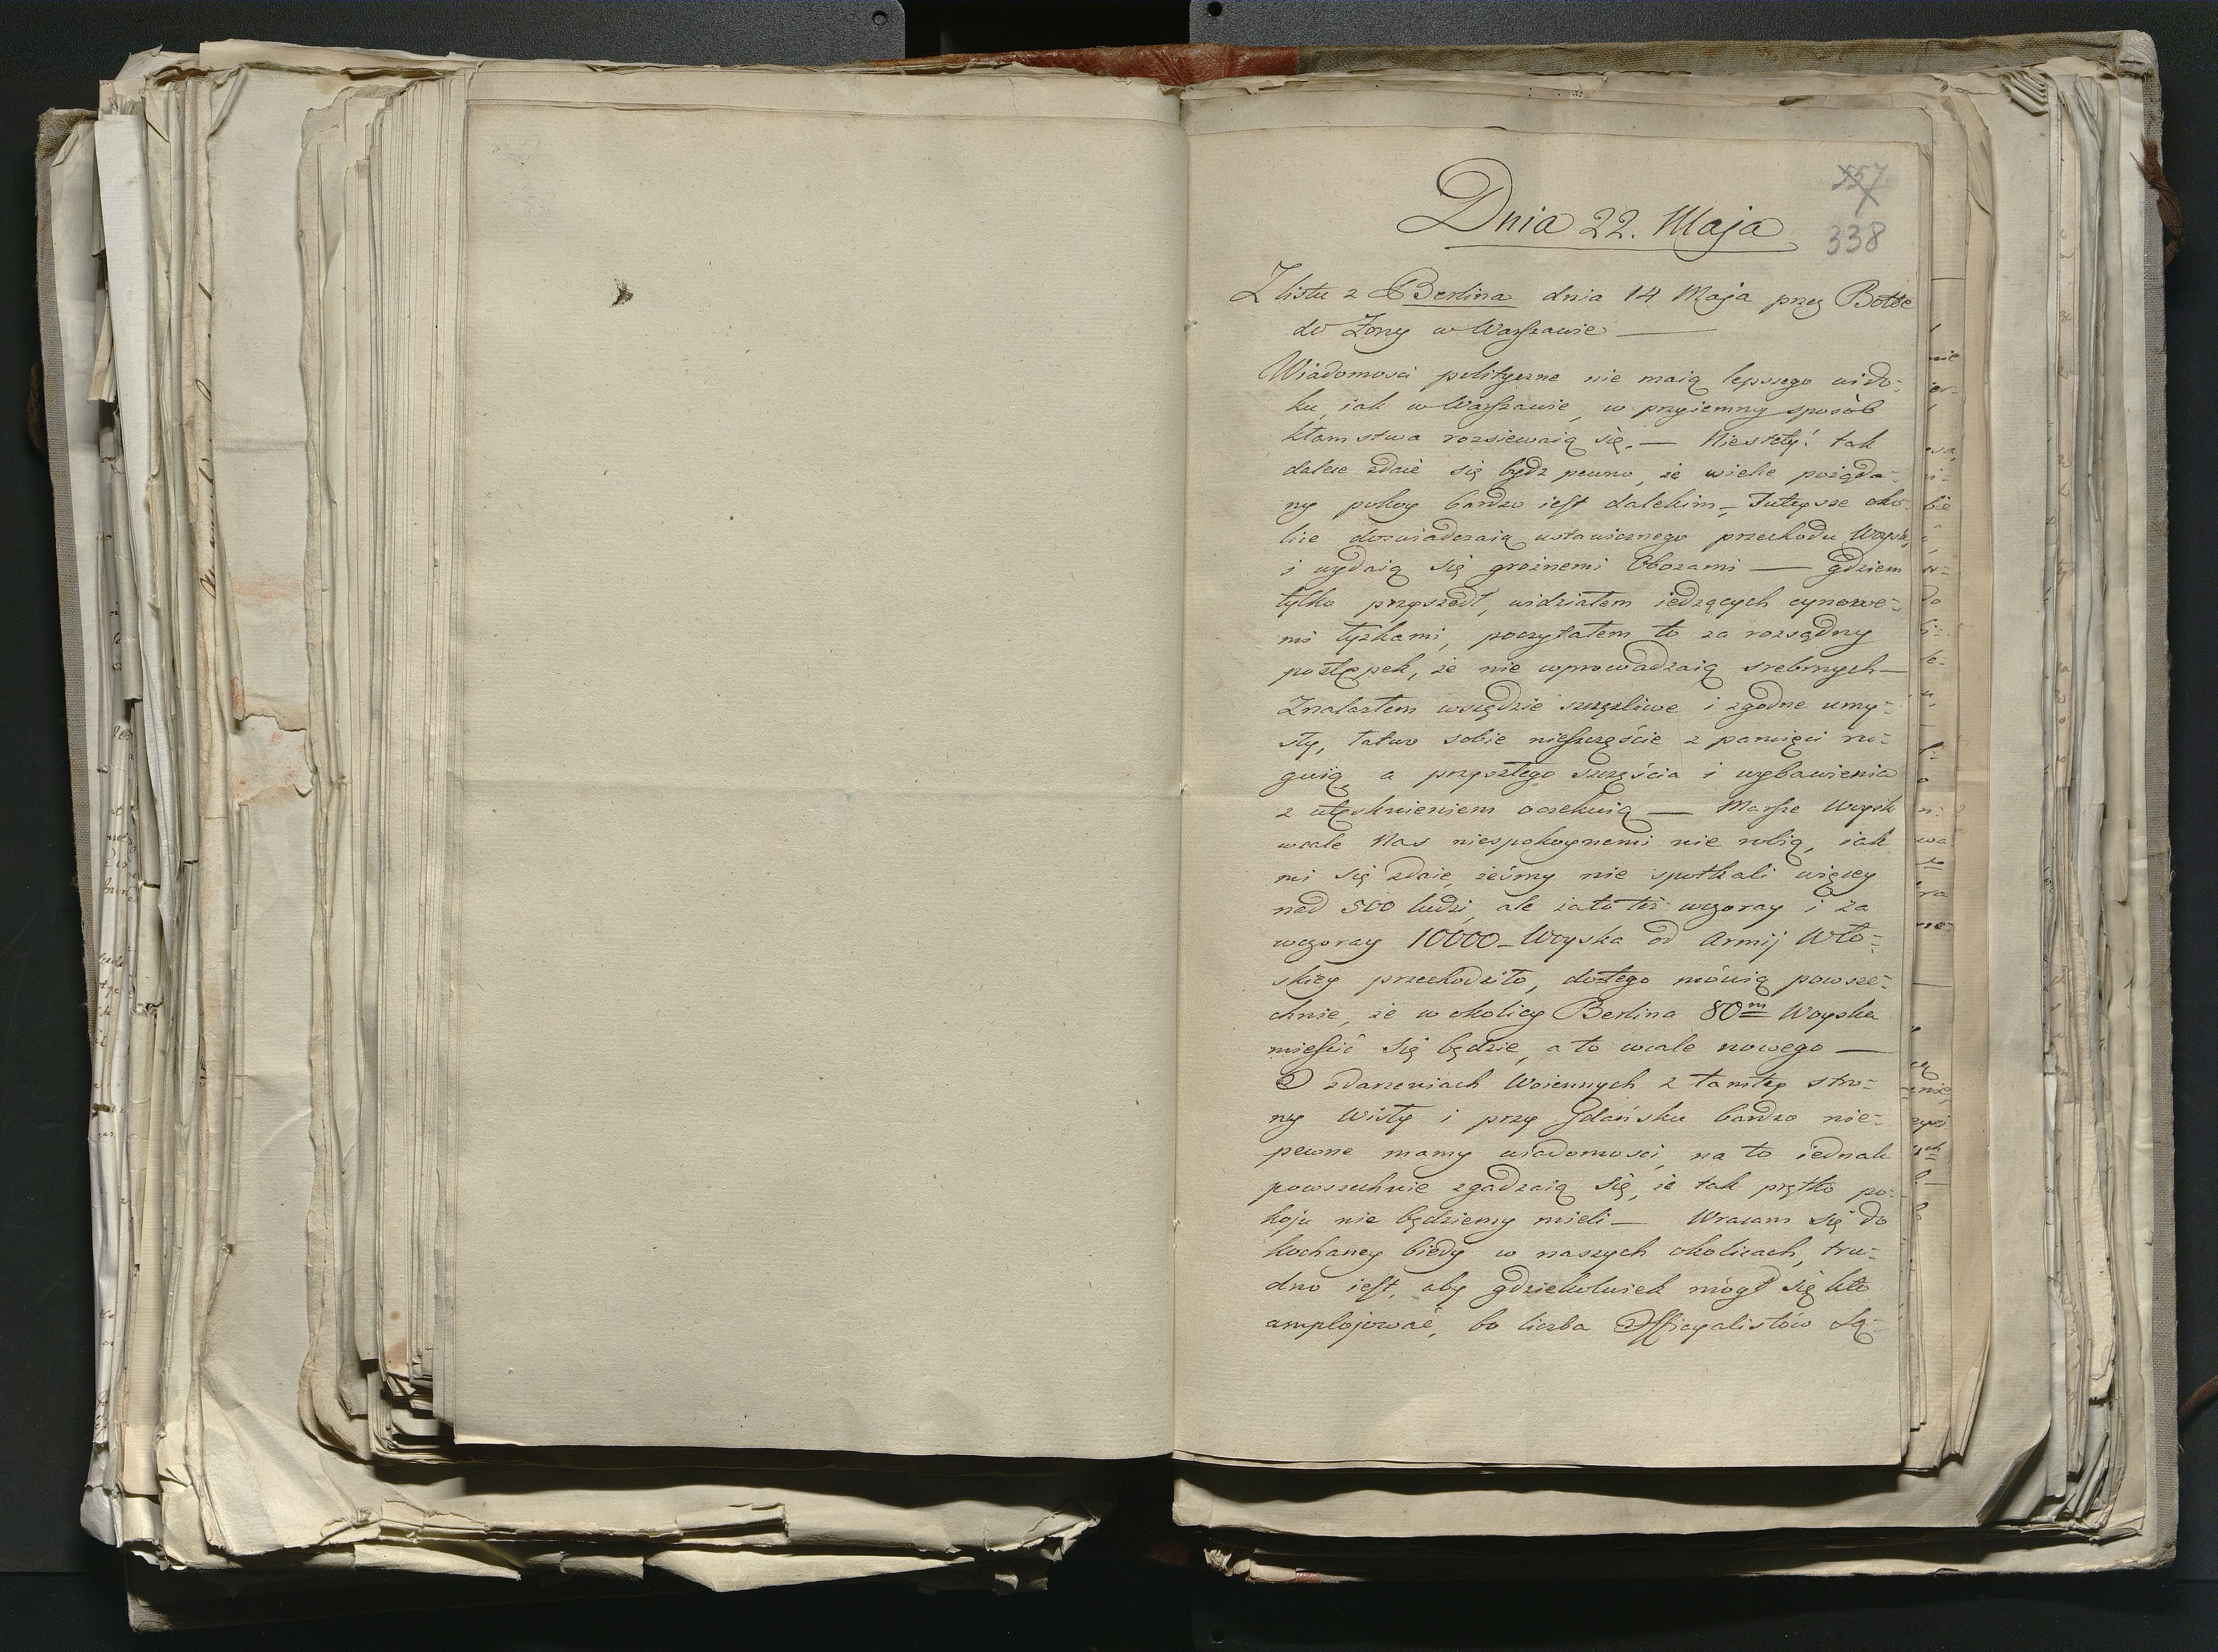 557
338
Dnia 22. Maja
Z listu z Berlina dnia 14 Maja przez Botbe
do Zony w Warszawie —
Wiadomosci polityczne nie maią lepszego wido-
ku, iak w Warszawie, w przyiemny sposób
kłamstwa rozsiewaią się. — Niestety! tak
dalece zdaie się bydz pewno, że wielce pożąda-
ny pokoy bardzo iest dalekim — Tuteysze oko-
lice doswiadczaią ustawicznego przechodu Woysk,
i wydaią się groźnemi Obozami — gdziem
tylko przyszedł, widziałem iedzących cynowe-
mi łyżkami, poczytałem to za rozsądny
postępek, że nie wprowadzaią srebrnych —
Znalazłem wszędzie szczęzliwe i zgodne umy-
sły, łatwo sobie nieszczęście z pamięci ru-
guią, a przyszłego szczęścia i wybawienia
z utęsknieniem oczekuią — Marsze Woysk
wcale Nas niespokoynemi nie robią, iak
mi się zdaie, żeśmy nie spotkali więcey
nad 500 ludzi, ale zato też wczoray i za
wczoray 10000 — Woyska od Armij Wło-
skiey przechodziło, do tego mówią powsze-
chnie, że w okolicy Berlina 80m Woyska
mieścić się będzie, a to wcale nowego —
O zdarzeniach Woiennych z tamtey stro-
ny Wisły i przy Gdańsku bardzo nie-
pewne mamy wiadomosci, na to iednak
powszechnie zgadzaią się, że tak prętko po-
koju nie będziemy mieli — Wracam się do
kochaney biedy w naszych okolicach, tru-
dno iest, aby gdziekolwiek mógł się kto
amplojować, bo liczba Officyalistów Są-